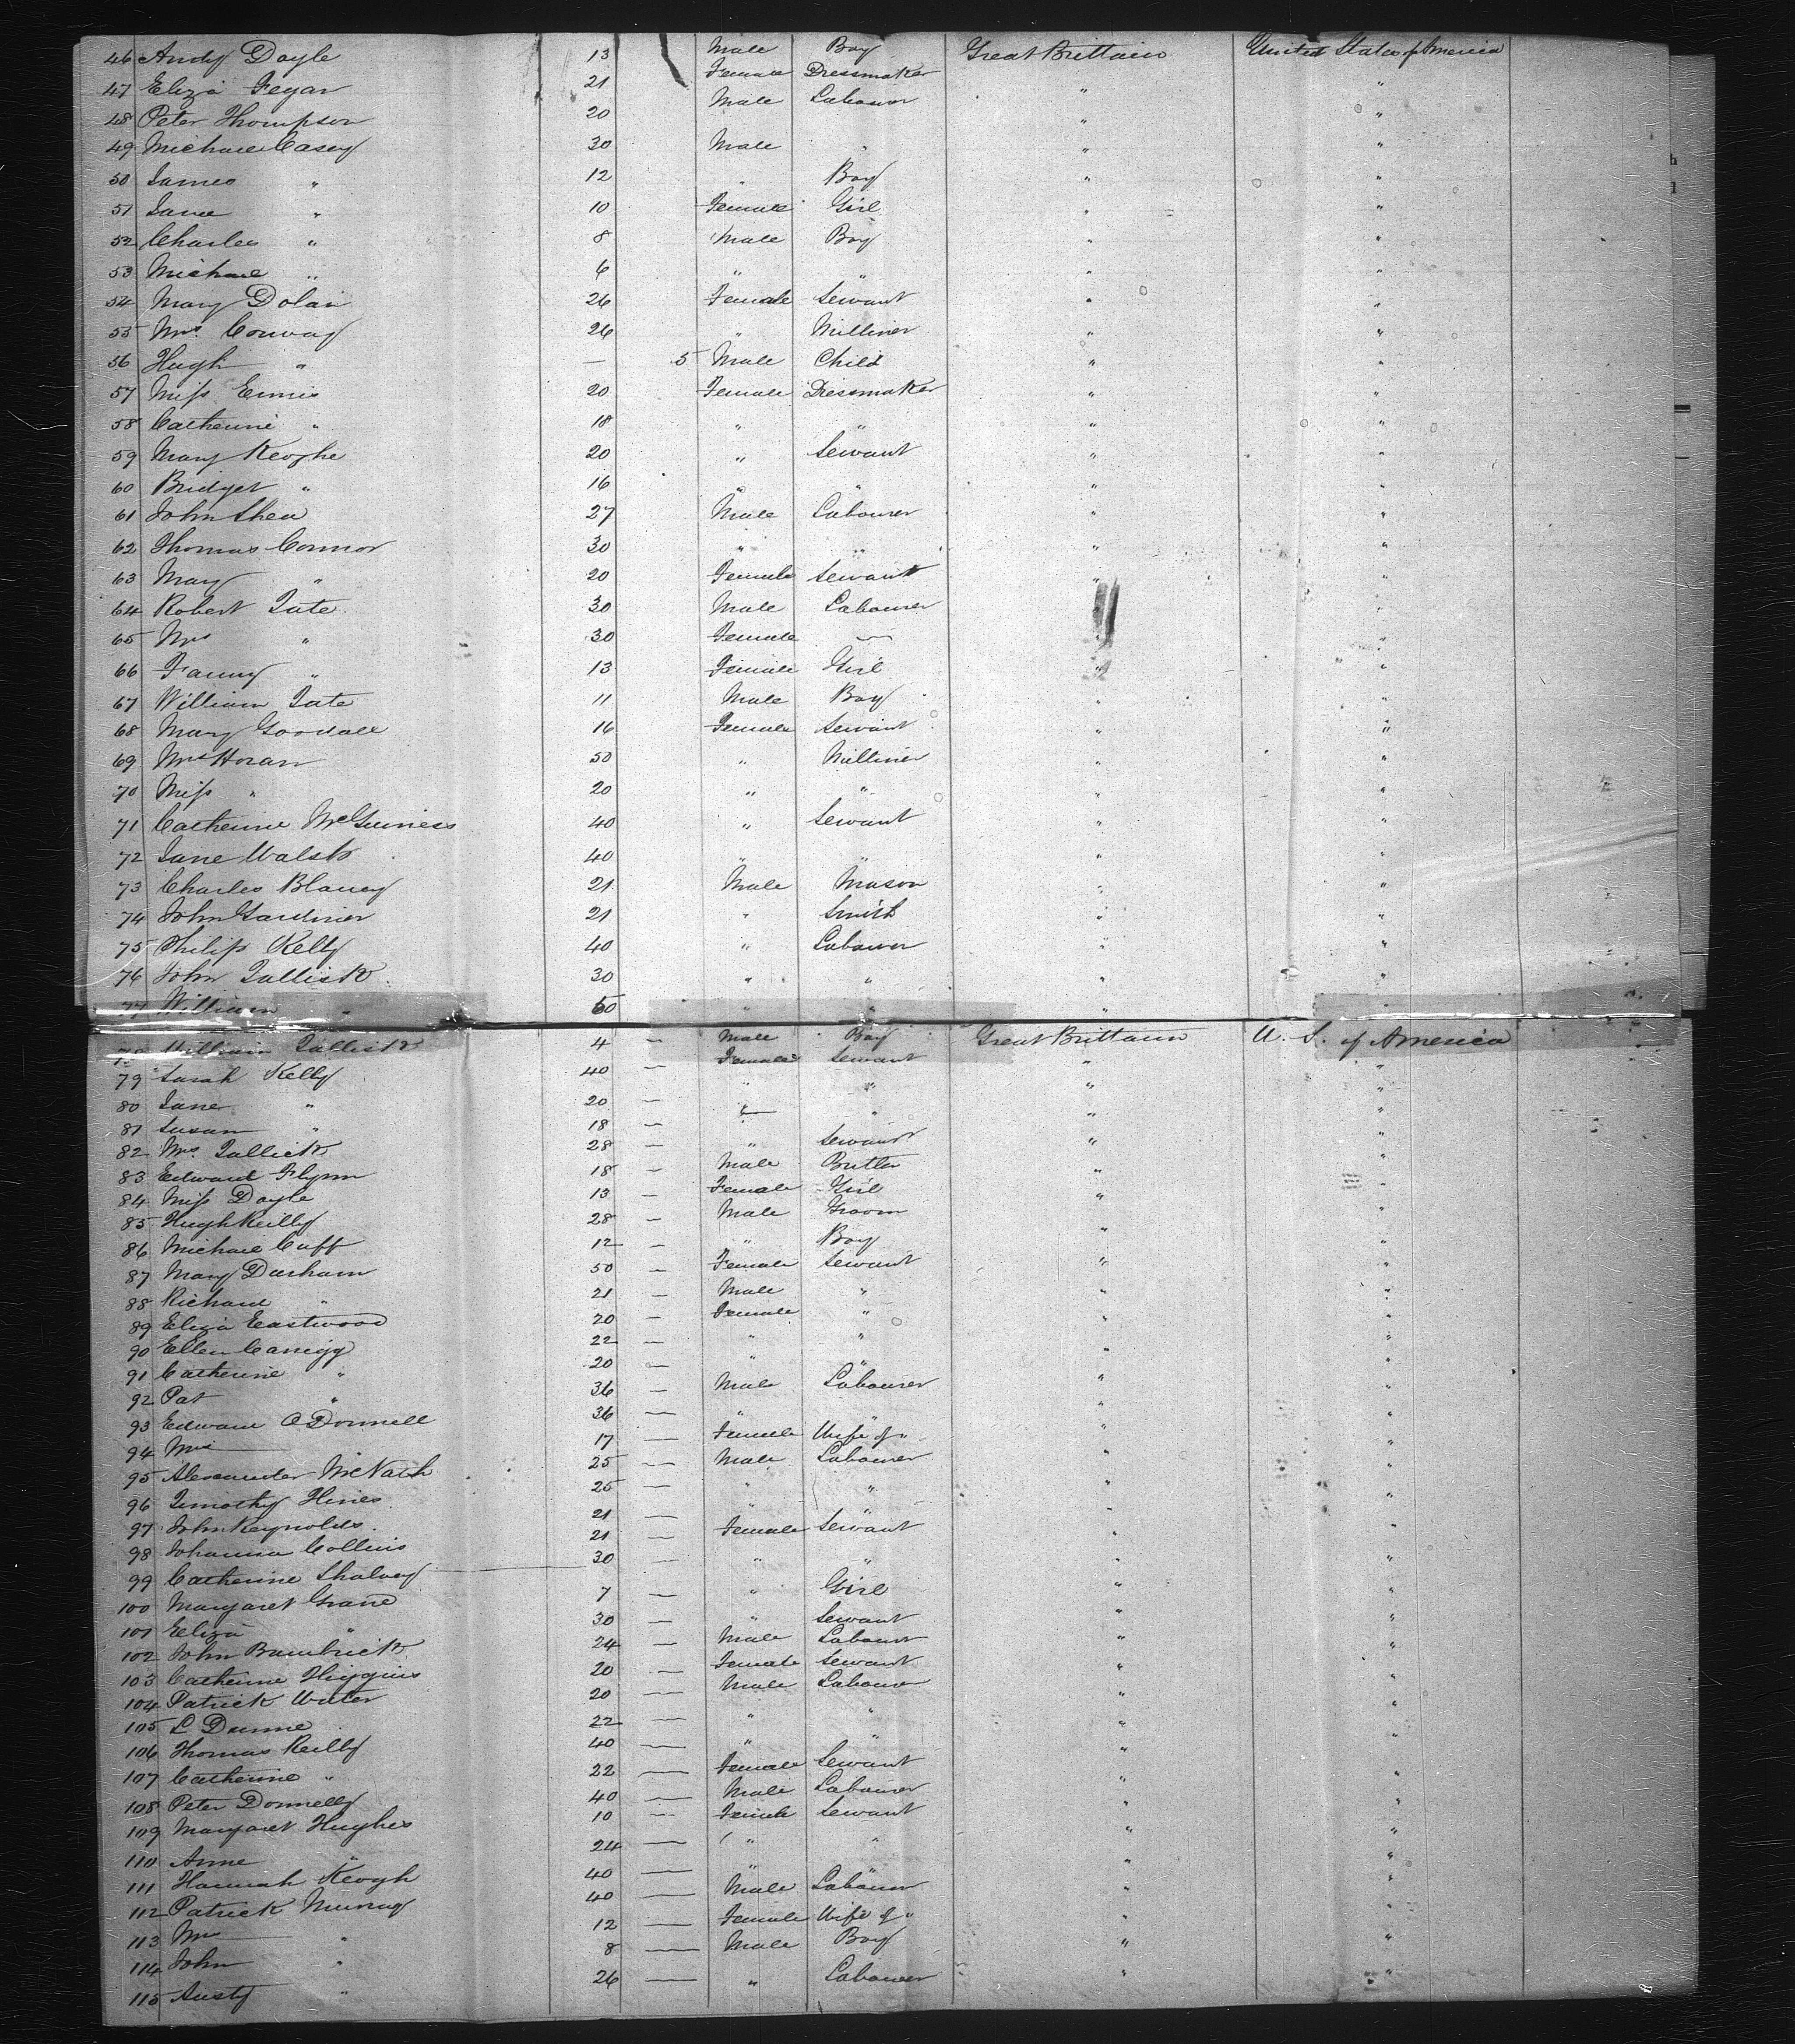 46 Andy Doyle 13 Male Boy Great Brittain United States of America
47 Eliza Fegan 21 Female Dressmaker " "
48 Peter Thompson 20 Male Labourer " "
49 Michael Casey 30 Male " " "
50 James " 12 " Boy " "
51 Jane " 10 Female Girl " "
52 Charles " 8 Male Boy " "
53 Michael " 6 " " " "
54 Mary Dolan 26 Female Servant " "
55 Mrs Conway 26 " Milliner " "
56 Hugh " — 5 Male Child " "
57 Miss Ennis 20 Female Dressmaker " "
58 Catherine " 18 " " " "
59 Mary Keoghe 20 " Servant " "
60 Bridget " 16 " " " "
61 John Shea 27 Male Labourer " "
62 Thomas Connor 30 " " " "
63 Mary " 20 Female Servant " "
64 Robert Tate 30 Male Labourer " "
65 Mrs " 30 Female — " "
66 Fanny " 13 Female Girl " "
67 William Tate 11 Male Boy " "
68 Mary Goodall 16 Female Servant " "
69 Mrs Horan 50 " Milliner " "
70 Miss " 20 " " " "
71 Catherine McGuiness 40 " Servant " "
72 Jane Walsh 40 " " " "
73 Charles Blaney 21 Male Mason " "
74 John Gardiner 21 " Smith " "
75 Philip Kelly 40 " Labourer " "
76 John Tallisk 30 " " " "
77 William " " " " "
78 William Tallisk 4 — Male Boy Great Brittain U. S. of America
79 Sarah Kelly 40 — Female Servant " "
80 Jane " 20 — " " " "
81 Susan " 18 — " " " "
82 Mrs Tallick 28 — " Servant " "
83 Edward Flynn 18 — Male Butler " "
84 Miss Doyle 13 — Female Girl " "
85 Hugh Reilly 28 — Male Groom " "
86 Michael Cuff 12 — " Boy " "
87 Mary Durham 50 — Female Servant " "
88 Richard " 21 — Male " " "
89 Eliza Eastwood 20 — Female " " "
90 Ellen Carrigg 22 — " " " "
91 Catherine " 20 — " " " "
92 Pat " 36 — Male Labourer " "
93 Edward O Donnell 36 — " " " "
94 Mrs — 17 — Female Wife of " " "
95 Alexander McNath 25 — Male Labourer " "
96 Timothy Hines 25 — " " " "
97 John Reynolds 21 — " " " "
98 Johanna Collins 21 — Female Servant " "
99 Catherine Shalvey 30 — " " " "
100 Margaret Grane 7 — " Girl " "
101 Eliza " 30 — " Servant " "
102 John Bambrick 24 — Male Labourer " "
103 Catherine Higgins 20 — Female Servant " "
104 Patrick 20 — Male Labourer " "
105 L Dunne 22 — " " " "
106 Thomas Reilly 40 — " " " "
107 Catherine " 22 — Female Servant " "
108 Peter Donnelly 40 — Male Labourer " "
109 Margaret Hughes 10 — Female Servant " "
110 Anne " 24 — " " " "
111 Hannah Keogh 40 — " " " "
112 Patrick Murray 40 — Male Labourer " "
113 Mrs — " 12 — Female Wife of " " "
114 John " 8 — Male Boy " "
115 Austy " 26 — " Labourer " "